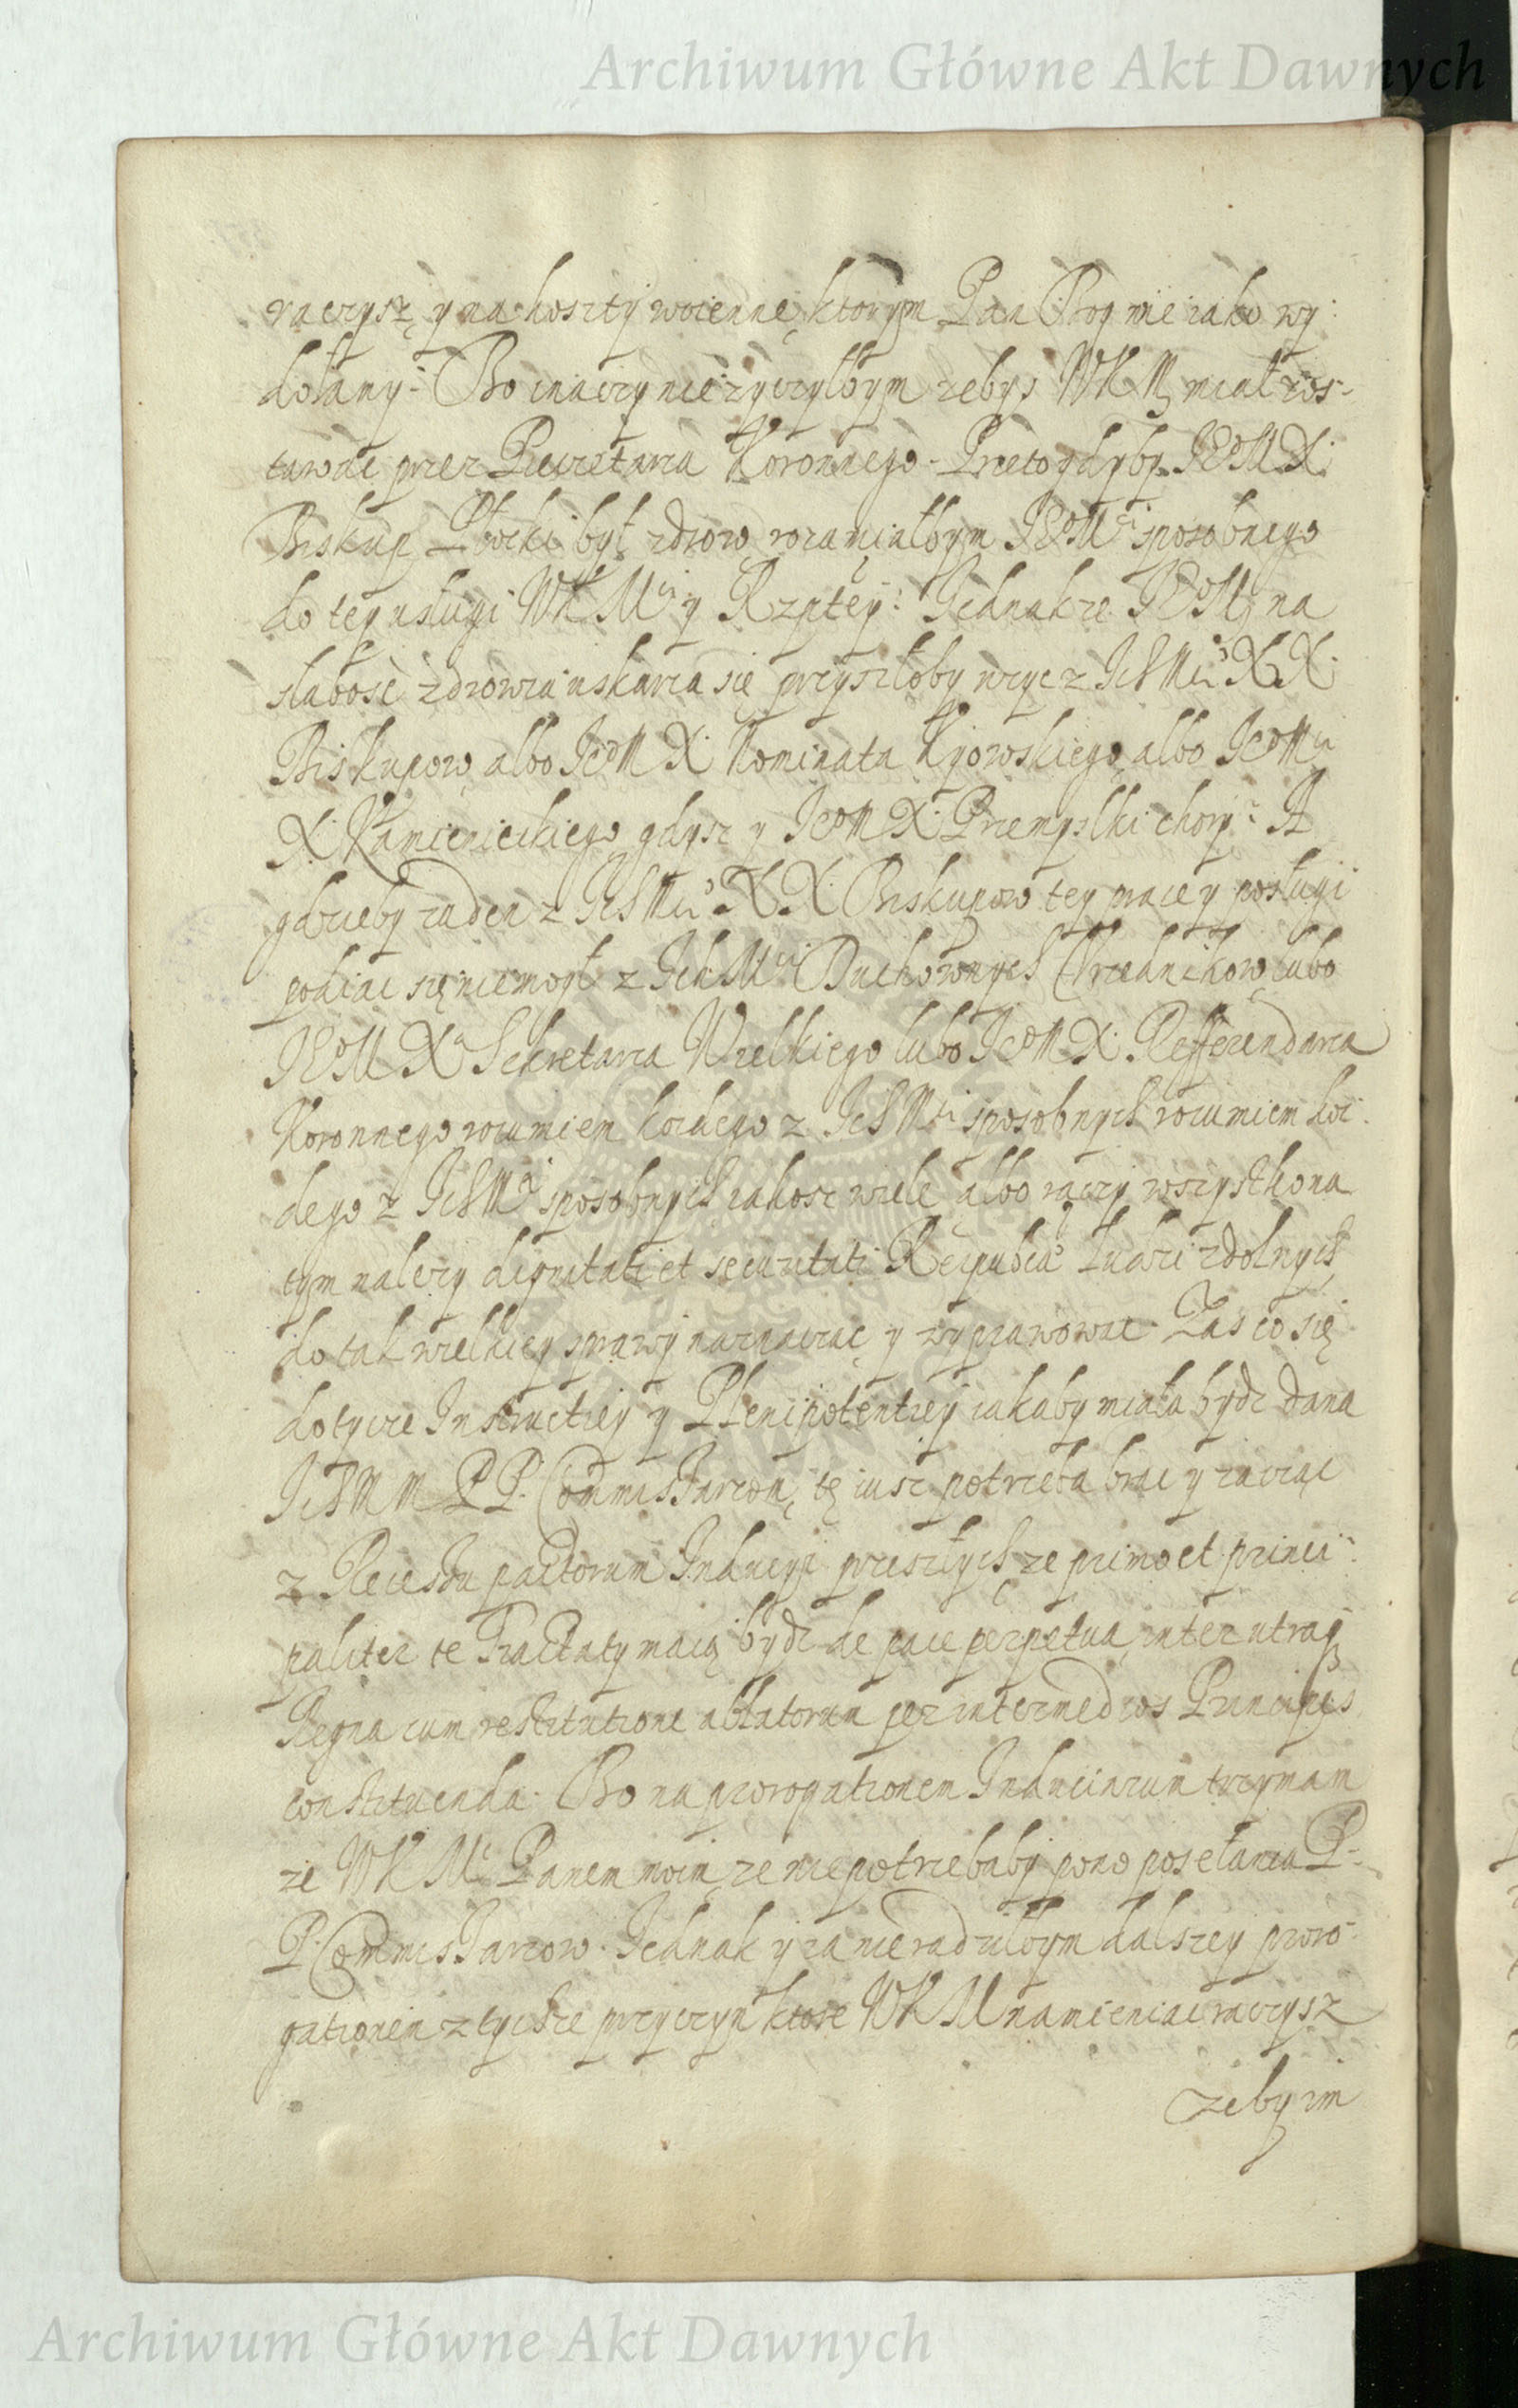 Archiwum Główne Akt Dawnych
raczysz, y na koszty woienne, ktorym Pan Bog nie iako wy:
dołamy: Bo inaczy nie zyczyłbym zebys WKM miał zos-
tawac przez Secretarza Koronnego. Przeto gdyby JEoM X:
Biskup Płocki był zdrow, rozumiałbym JEoMci sposobnego
do tey usługi WKMci y Rzptey: Jednak ze JEoM na
słabosc zdrowia uskarza się przyszłoby uzyc z IchMciow XX.
Biskupow, albo JeoM X. Nominata Kyowskiego, albo JeoMci
X. Kamienieckiego, gdysz y JeoM X. Przemyslki chory: A
gdzieby zaden z IchMciow XX Biskupow tey pracey posługi
podiac się nie mogł z Ich Mci Duchownych Urzednikow, lubo
JEoM Xa Sekretarza Wielkiego lubo JeoM X. Refferendarza
Koronnego rozumiem kozdego z IchMci sposobnych rozumiem koz:
dego z IchMci sposobnych iakosz wiele albo raczy wszystko na
tym nalezy dignitati et securitati Reipublcae Ludzi zdolnych
do tak wielkiey sprawy naznaczac y wyprawowac. Zas co się
dotycze Instructiey y Plenipotentiey iakaby miała bydz dana
IchMM PP. Commissarzom, tę iusz potrzeba brac y zacząc
z Recessu pactorum Induciy przeszłych, ze primo et princi:
paliter te Tractaty maią bydz de pace perpetua, inter utraq
Regna cum restitutione ablatorum per intermedios Principes
constituenda. Bo na prorogationem Induciarum trzymam
ze WKMc Panem moim, ze nie potrzebaby pono posełania P:
P. Commissarzow. Jednak y ia nie radziłbym dalszey proro:
gationem z tychze przyczyn ktore WKM namieniac raczysz
zeby im
Archiwum Główne Akt Dawnych